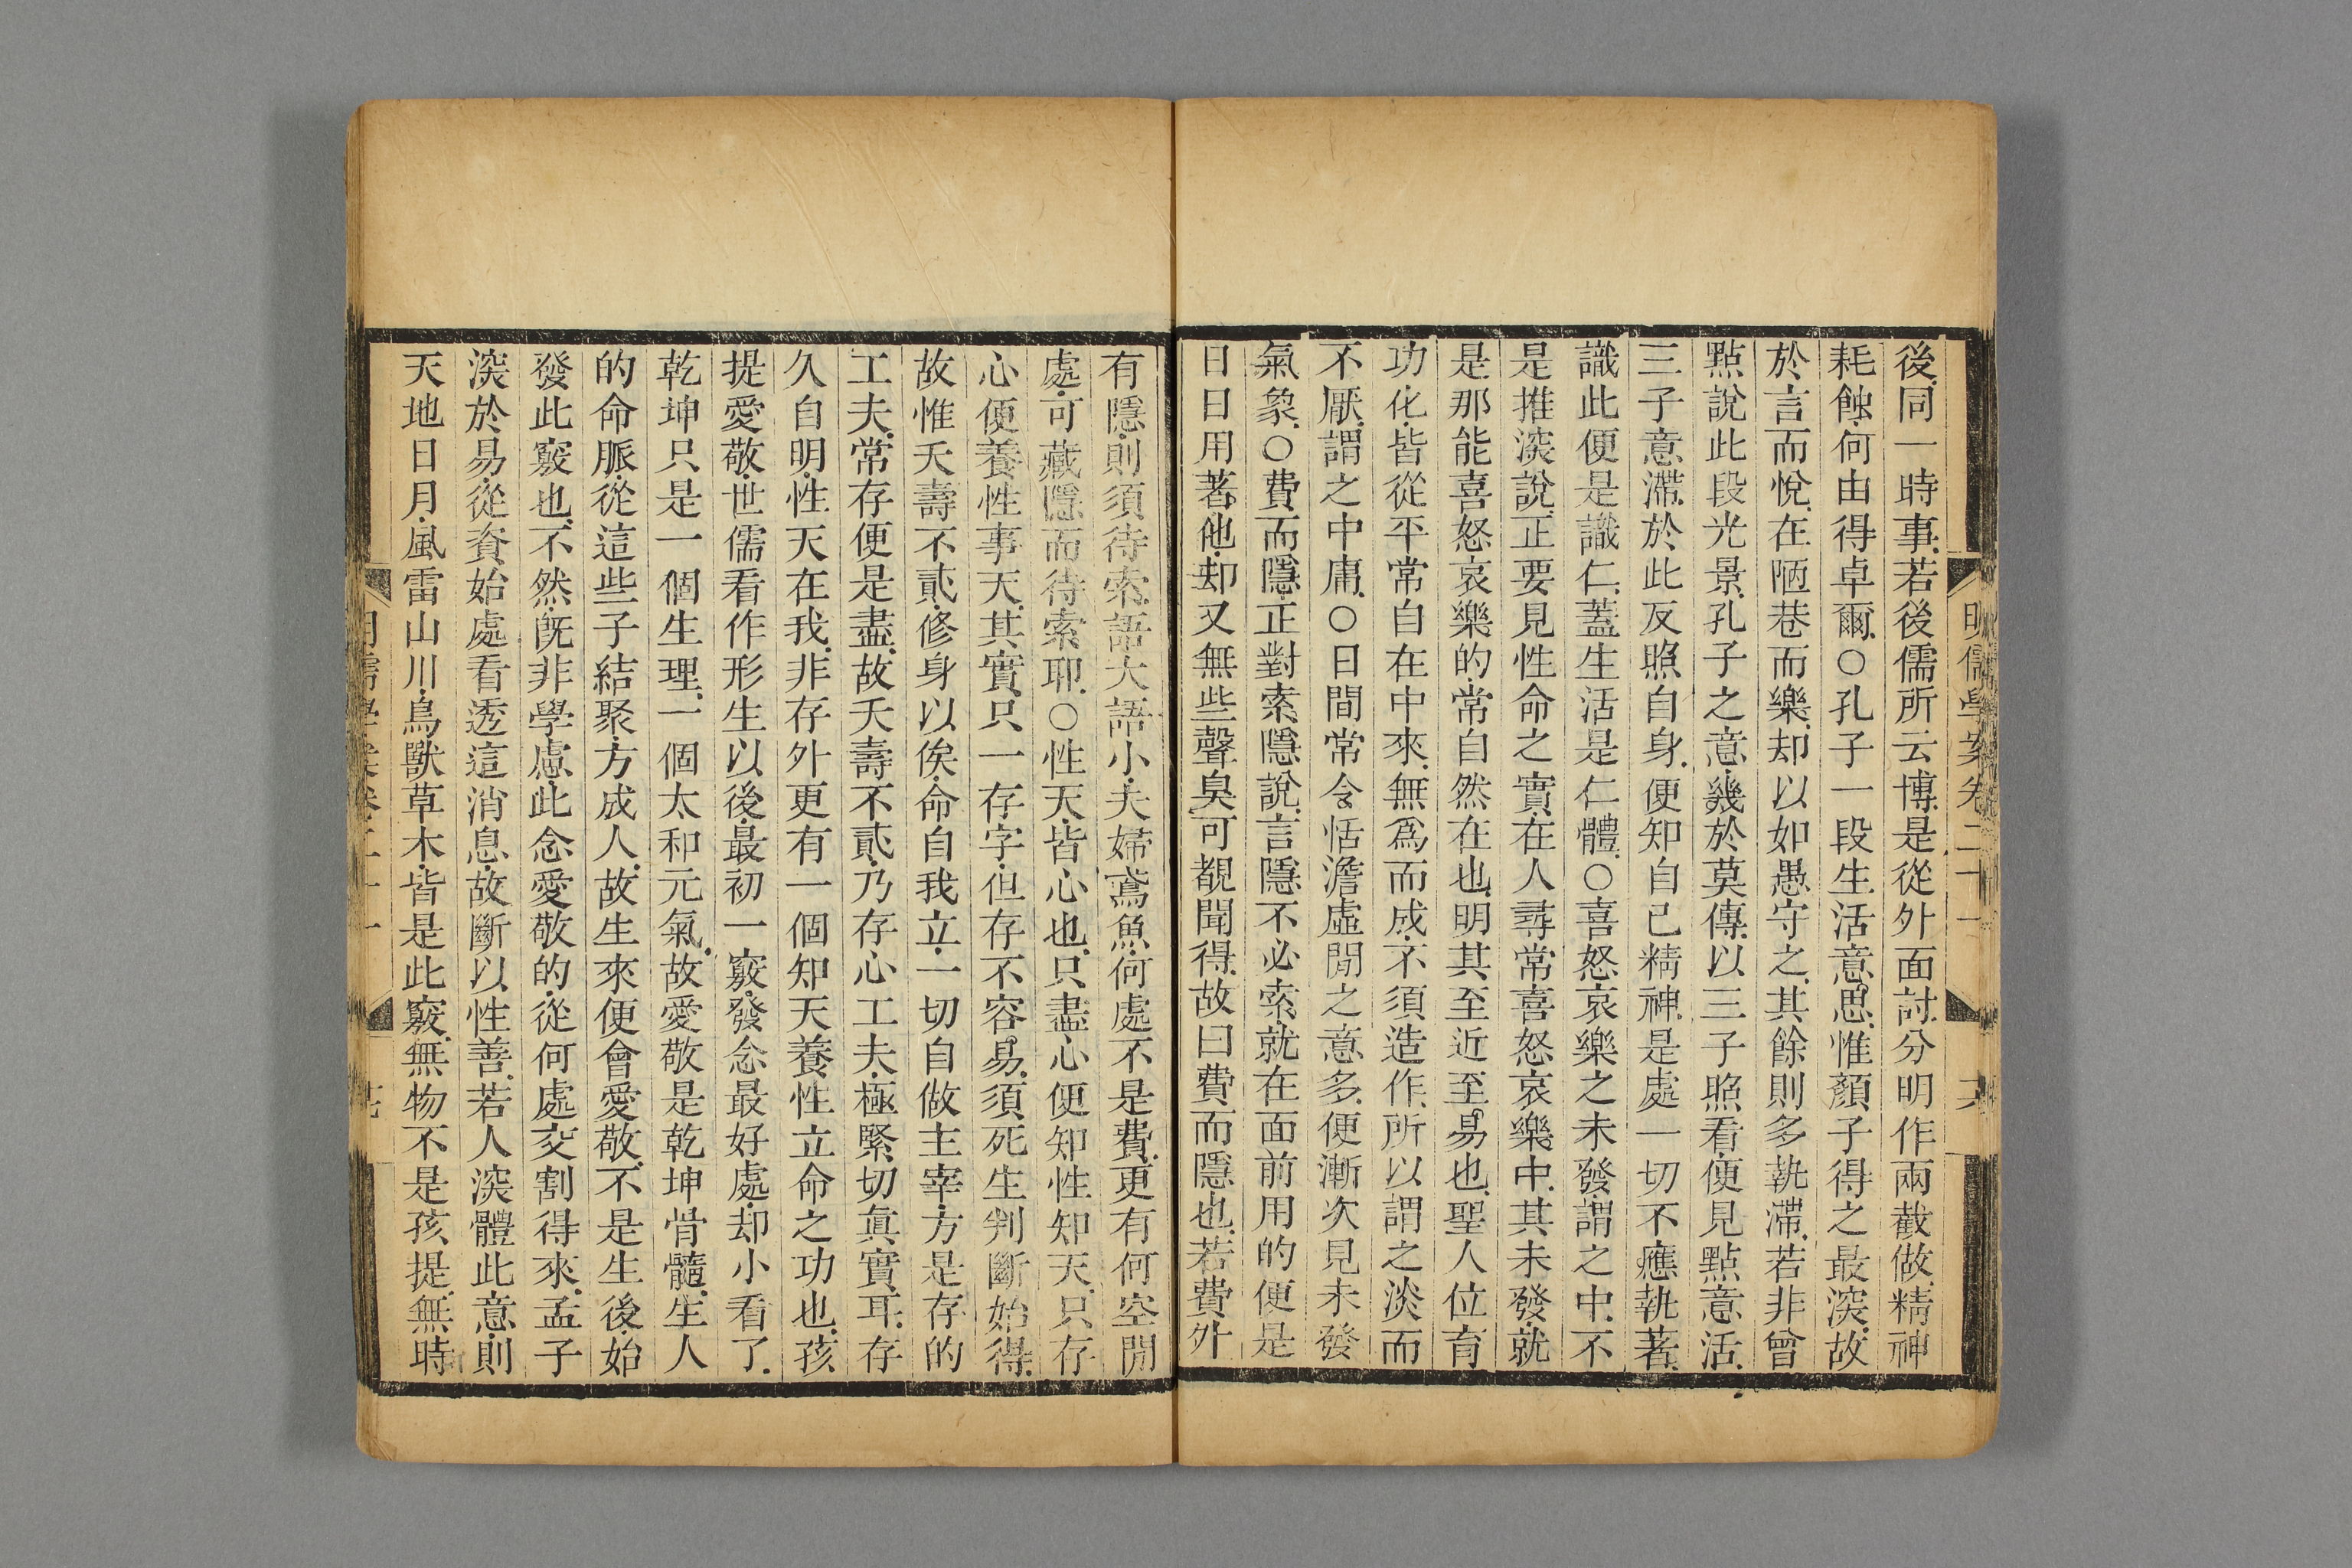 明儒學案卷二十一
后同一時事若後儒所云博是從外面討分明作兩截做精神
耗蝕何由得卓爾○孔子一段生活意思惟顏子得之最深故
於言而悅在陋巷而樂却以如愚守之其餘則多執滯若非曾
點說此段光景孔子之意幾於莫傳以三子照看便見點意活
三子意滯於此反照自身便知自己精神是處一切不應執著
識此便是識仁蓋生活是仁體○喜怒哀樂之未發謂之中不
是推深說正要見性命之實在人尋常喜怒哀樂中其未發就
是那能喜怒哀樂的常自然在也明其至近至易也聖人位育
功化皆從平常自在中來無爲而成不須造作所以謂之淡而
不厭謂之中庸○日間常令恬澹虛閒之意多便漸次見未發
氣象○費而隱正對索隱說言隱不必索就在面前用的便是
日日用著他却又無些聲臭可覩聞得故曰費而隱也若費外
有隱則須待索語大語小夫婦鳶魚何處不是費更有何空閒
處可藏隱而待索耶○性天皆心也只盡心便知性知天只存
心便養性事天其實只一存字但存不容易須死生判斷始得
故惟夭壽不貳修身以俟命自我立一切自做主宰方是存的
工夫常存便是盡故夭壽不貳乃存心工夫極緊切眞實耳存
久自明性天在我非存外更有一個知天養性立命之功也孩
提愛敬世儒看作形生以後最初一竅發念最好處却小看了
乾坤只是一個生理一個太和元氣故愛敬是乾坤骨髓生人
的命脈從這些子結聚方成人故生來便會愛敬不是生後始
發此竅也不然旣非學慮此念愛敬的從何處交割得來孟子
深於易從資始處看透這消息故斷以性善若人深體此意則
天地日月風雷山川鳥獸草木皆是此竅無物不是孩提無時